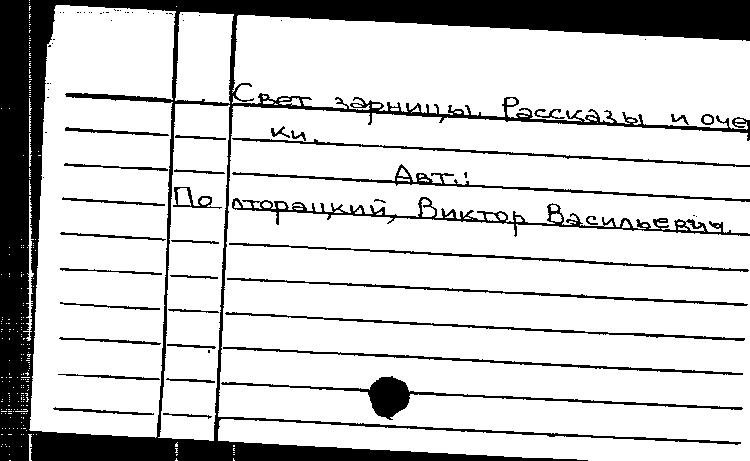 Свет зарницы. Рассказы и очер
ки.
Авт.:
Полторацкий, Виктор Васильевич.